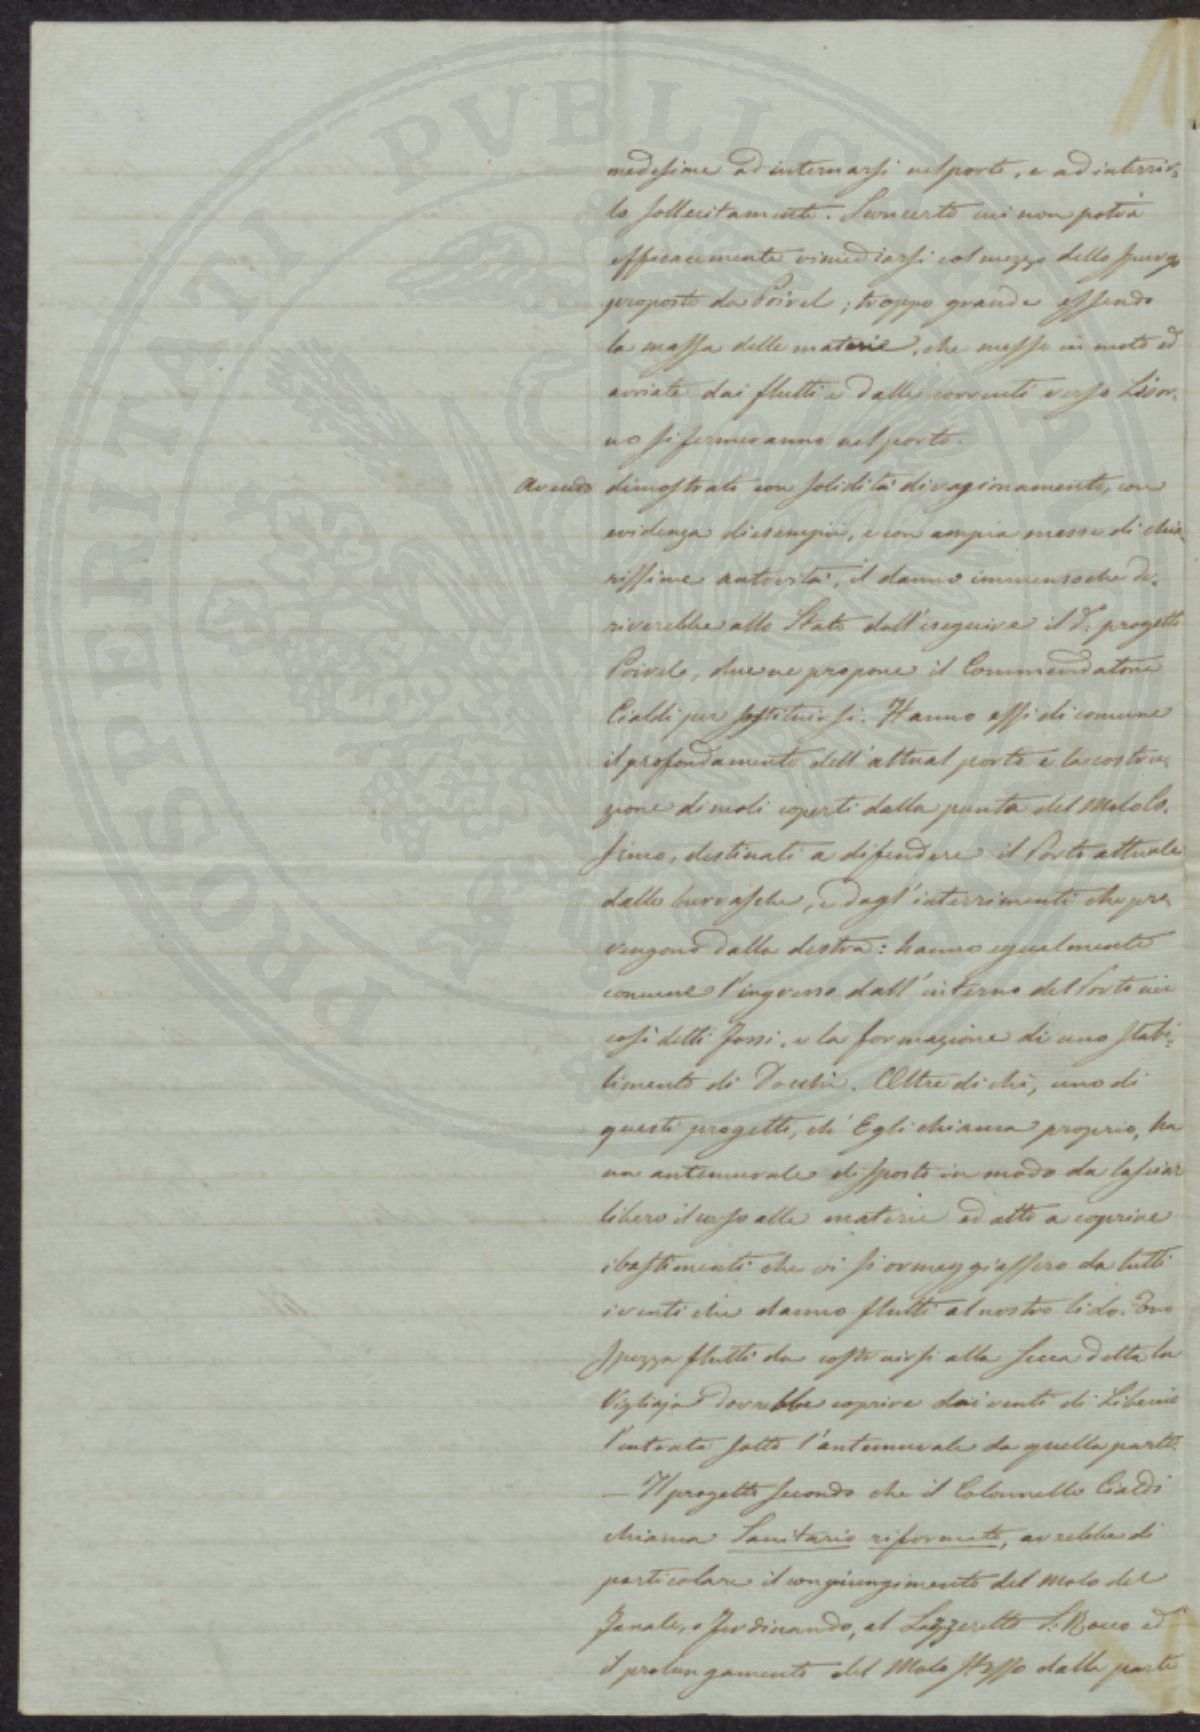 PROSPERITATI PVBLICAE
medesime ad internarsi nel porto, e ad interrir-
lo sollecitamente. Sconcerto cui non potrà
efficacemente rimediarsi col mezzo dello spurgo
proposto da Poirel; troppo grande essendo
la massa delle materie, che messe in moto ed
avviate dai flutti e dalle correnti verso Livor-
no si fermeranno nel porto.
Avendo dimostrato con solidità di ragionamento, con
evidenza di esempii, e con ampia messe di chia-
rissime autorità, il danno immenso che de-
riverebbe allo Stato dall'eseguire il d.o progetto
Poirel, due ne propone il Commendatore
Cialdi per sostituirsi. Hanno essi di comune
il profondamento dell'attual porto e la costru-
zione di moli coperti dalla punta del Molo Co-
simo, destinati a difendere il Porto attuale
dalle burrasche, e dagl'interrimenti che pro-
vengono dalla destra: hanno egualmente
comune l'ingresso dall'interno del Porto nei
così detti Fossi, e la formazione di uno stabi-
limento di Docchi. Oltre di chè, uno di
questi progetti, ch'Egli chiama proprio, ha
un antemurale disposto in modo da lasciar
libero il corso alle materie ed atto a coprire
i bastimenti che vi si ormeggiassero da tutti
i venti che danno flutti al nostro lido. Uno
spezza flutti da costruirsi alla secca detta la
Vigliaja dovrebbe coprire dai venti di Libeccio
l'entrata sotto l'antemurale da quella parte.
— Il progetto secondo che il Colonnello Cialdi
chiama Sanitario riformato, avrebbe di
particolare il congiungimento del Molo del
Fanale, o Ferdinando, al Lazzeretto S. Rocco ed
il prolungamento del Molo stesso dalla parte